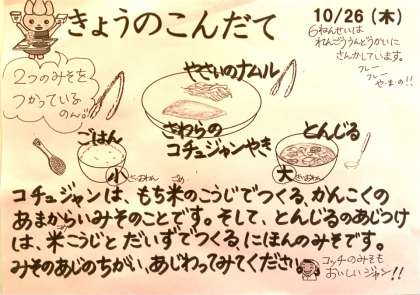 きょうのこんだて
10/26(木)
6ねんせいは
れんごううんどうかいに
さんかしています。
フレー
フレー
や・ま・の!!
2つのみそを
つかっている
のん♪
やさいのナムル
さわらの
コチュジャンやき
ごはん
小
とんじる
大
コチュジャンは、もち米のこうじでつくる、かんこくの
あまからいみそのことです。そして、とんじるのあじつけ
は、米こうじとだいずでつくる、にほんのみそです。
みそのあじのちがい、あじわってみてください。
コッチのみそも
おいしいジャン!!